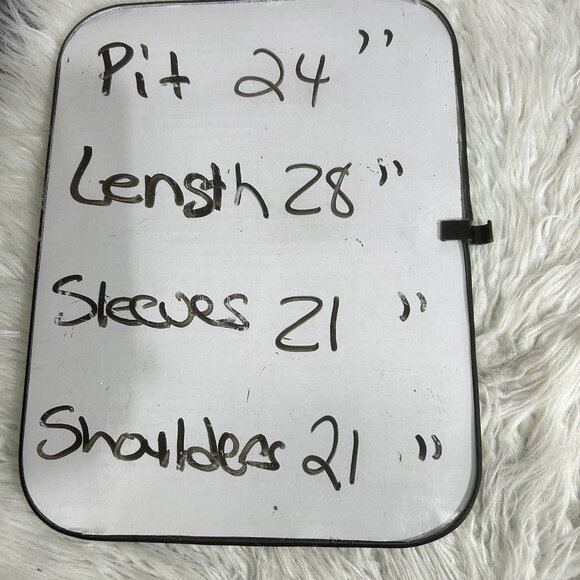 Pit 24"
Length 28"
Sleeves 21"
Shoulders 21"